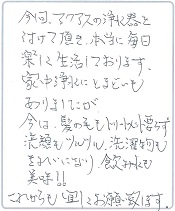 今回、アクアスの浄水器を
付けて頂き、本当に毎日
楽しく生活しております。
家中浄水にとまどいも
ありましたが
今は、髪の毛もトリートメント要らず
洗顔もツルツル、洗濯物も
きれいになり、飲み水も
美味!!
これからも宜しくお願い致します。